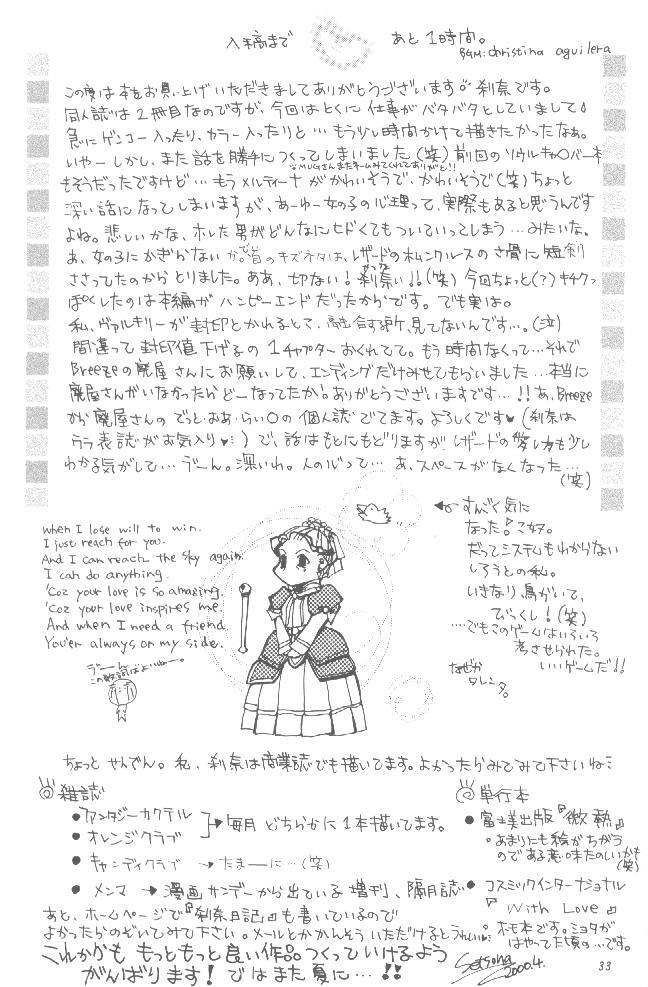 入稿まで あと1時間。
BGM: christina aguilera
この度は本をお買い上げいただきましてありがとうございます。刹奈です。
同人誌は2冊目なのですが、今回はとくに仕事がバタバタとしていまして
急にゲンコー入ったり、カラー入ったりと…もう少し時間かけて描きたかったなぁ。
いやーしかし、また話を勝手につくってしまいました(笑)前回のソウルキャ○バー本
MUGさんまたネームみてくれてありがと!!
もそうだったですけど…もうメルティーナがかわいそうで、かわいそうで(笑)ちょっと
深い話になってしまいますが、あーゆー女の子の心理って、実際もあると思うんです
よね。悲しいかな、ホレた男がどんなにヒドくてもついていってしまう…みたいな。
あ、女の子にかぎらないか。で首のキズネタは、レザードのホムンクルスの背骨に短剣
ささってたのからとりました。ああ、切ない!刹奈い!!(笑)今回ちょっと(?)キチクっ
せつな
ぽくしたのは本編がハンピーエンドだったからです。でも実は。
私、ヴァルキリーが封印とかれるとこで、融合する所、見てないんです…。(泣)
間違って封印値下げるの1チャプターおくれてて。もう時間なくって…それで
Breezeの廃屋さんにお願いして、エンディングだけみせてもらいました…本当に
廃屋さんがいなかったらどーなってたか!ありがとうございますです…!!あ、Breeze
から廃屋さんのでっど・おあ・らい○の個人誌でてます。よろしくです♥(刹奈は
ウラ表誌がお気入り♥)で、話はもとにもどりますが、レザードの愛し方も少し
わかる気がして…うーん。深いわ。人の心って…あ、スペースがなくなった…
(笑)
when I lose will to win.
I just reach for you.
And I can reach the sky again.
I can do anything.
'Coz your love is so amazing.
'Coz your love inspires me.
And when I need a friend
You'er always on my side.
この歌詞はよいねー。
すんごく気に
なった!コ奴。
だってシステムもわからない
しろうとの私。
いきなり鳥がいて、
びっくし!(笑)
…でもこのゲームはいろいろ
考させられた。
いいゲームだ!!
なぜか
タレンタ。
ちょっとせんでん。私、刹奈は商業誌でも描いてます。よかったらみてみて下さいね
雑誌
●ファンタジーカクテル
●オレンジクラブ
→毎月どちらかに1本描いてます。
●キャンディクラブ →たまーに…(笑)
●メンマ →漫画サンデーから出ている増刊、隔月誌
単行本
●富士美出版『微熱』
。あまりにも絵がちがう
のである意味たのしいかも
(笑)
●コスミックインターナショナル
『With Love』
。ホモ本です。ミヨタが
はやってた頃の…です。
あと、ホームページで『刹奈日記』も書いているので
よかったらのぞいてみて下さい。メールとかかんそういただけるとうれしい
これからも もっともっと良い作品つくっていけるよう
がんばります!ではまた夏に…!!
Setsuna
2000.4.
33